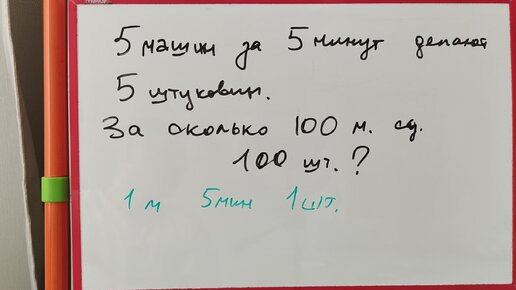 5 машин за 5 минут делают
5 штуковин.
За сколько 100 м. сд.
100 шт.?
1 м 5мин 1шт.